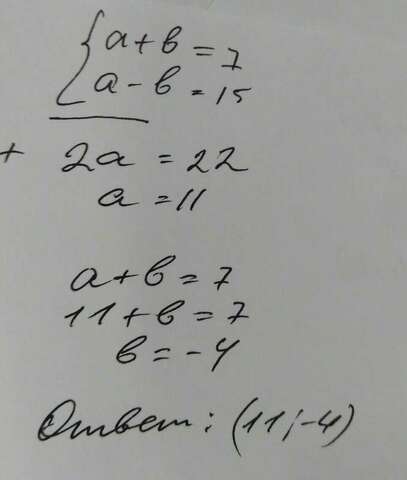 {a+b=7
a-b=15
+ 2a=22
a=11
a+b=7
11+b=7
b=-4
Ответ: (11;-4)